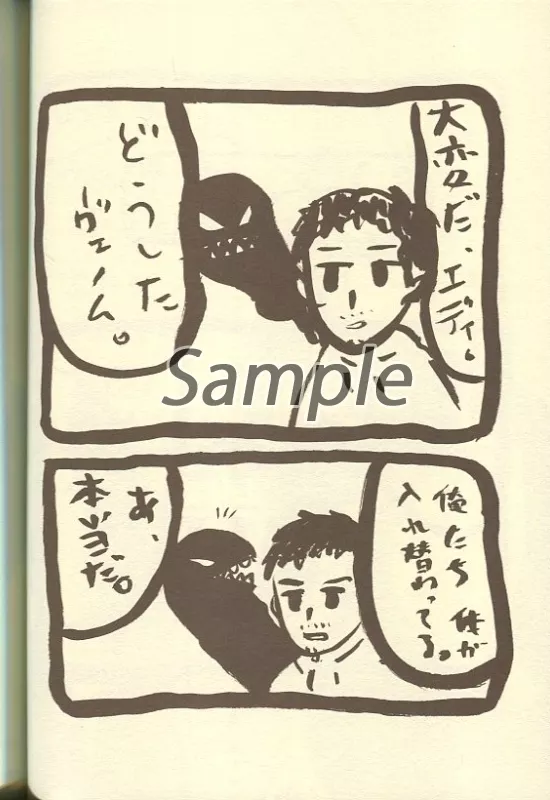 大変だ、エディ。
どうした
ヴェノム。
Sample
俺たち 体が
入れ替わってる。
あ、
本当だ。